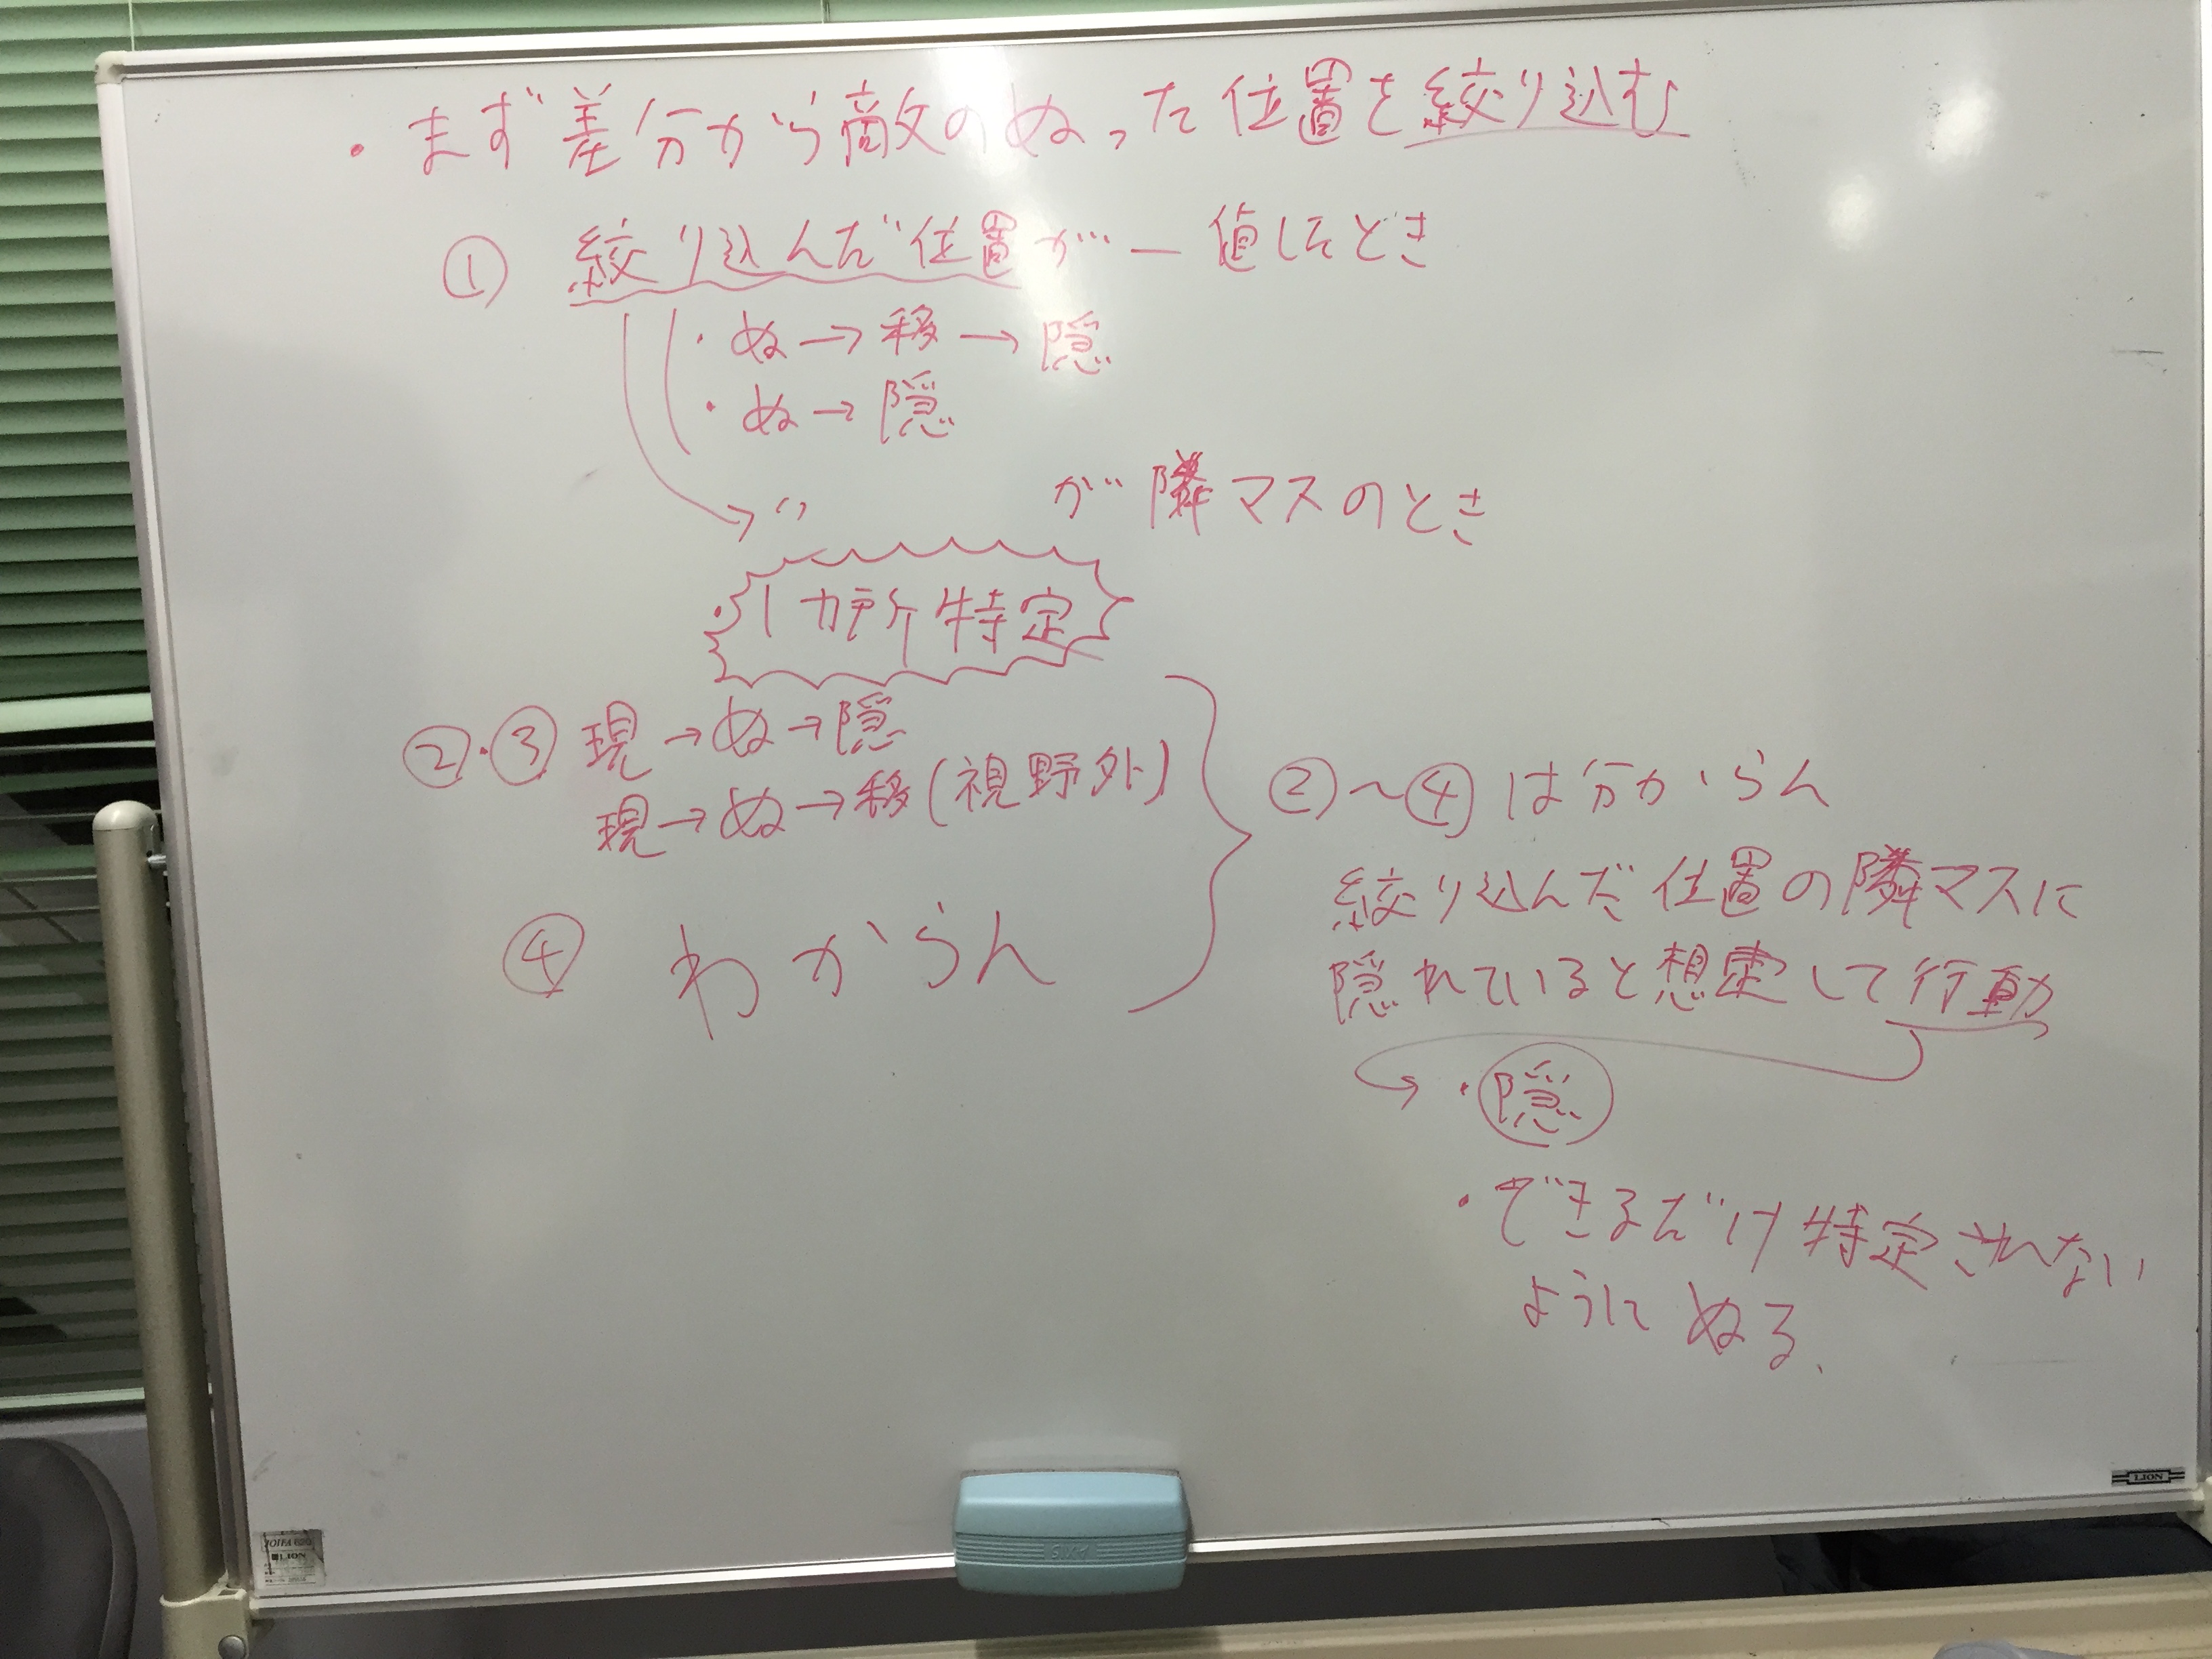 ・まず差分から敵のぬった位置を絞り込む
① 絞り込んだ位置が一値したとき
・ぬ→移→隠
・ぬ→隠
→ 〃 が隣マスのとき
・1カ所特定
②・③ 現→ぬ→隠
現→ぬ→移(視野外)
④ わからん
②〜④は分からん
絞り込んだ位置の隣マスに
隠れていると想定して行動
→ ・隠
・できるだけ特定されない
ようにぬる、
LION
JOIFA
LION